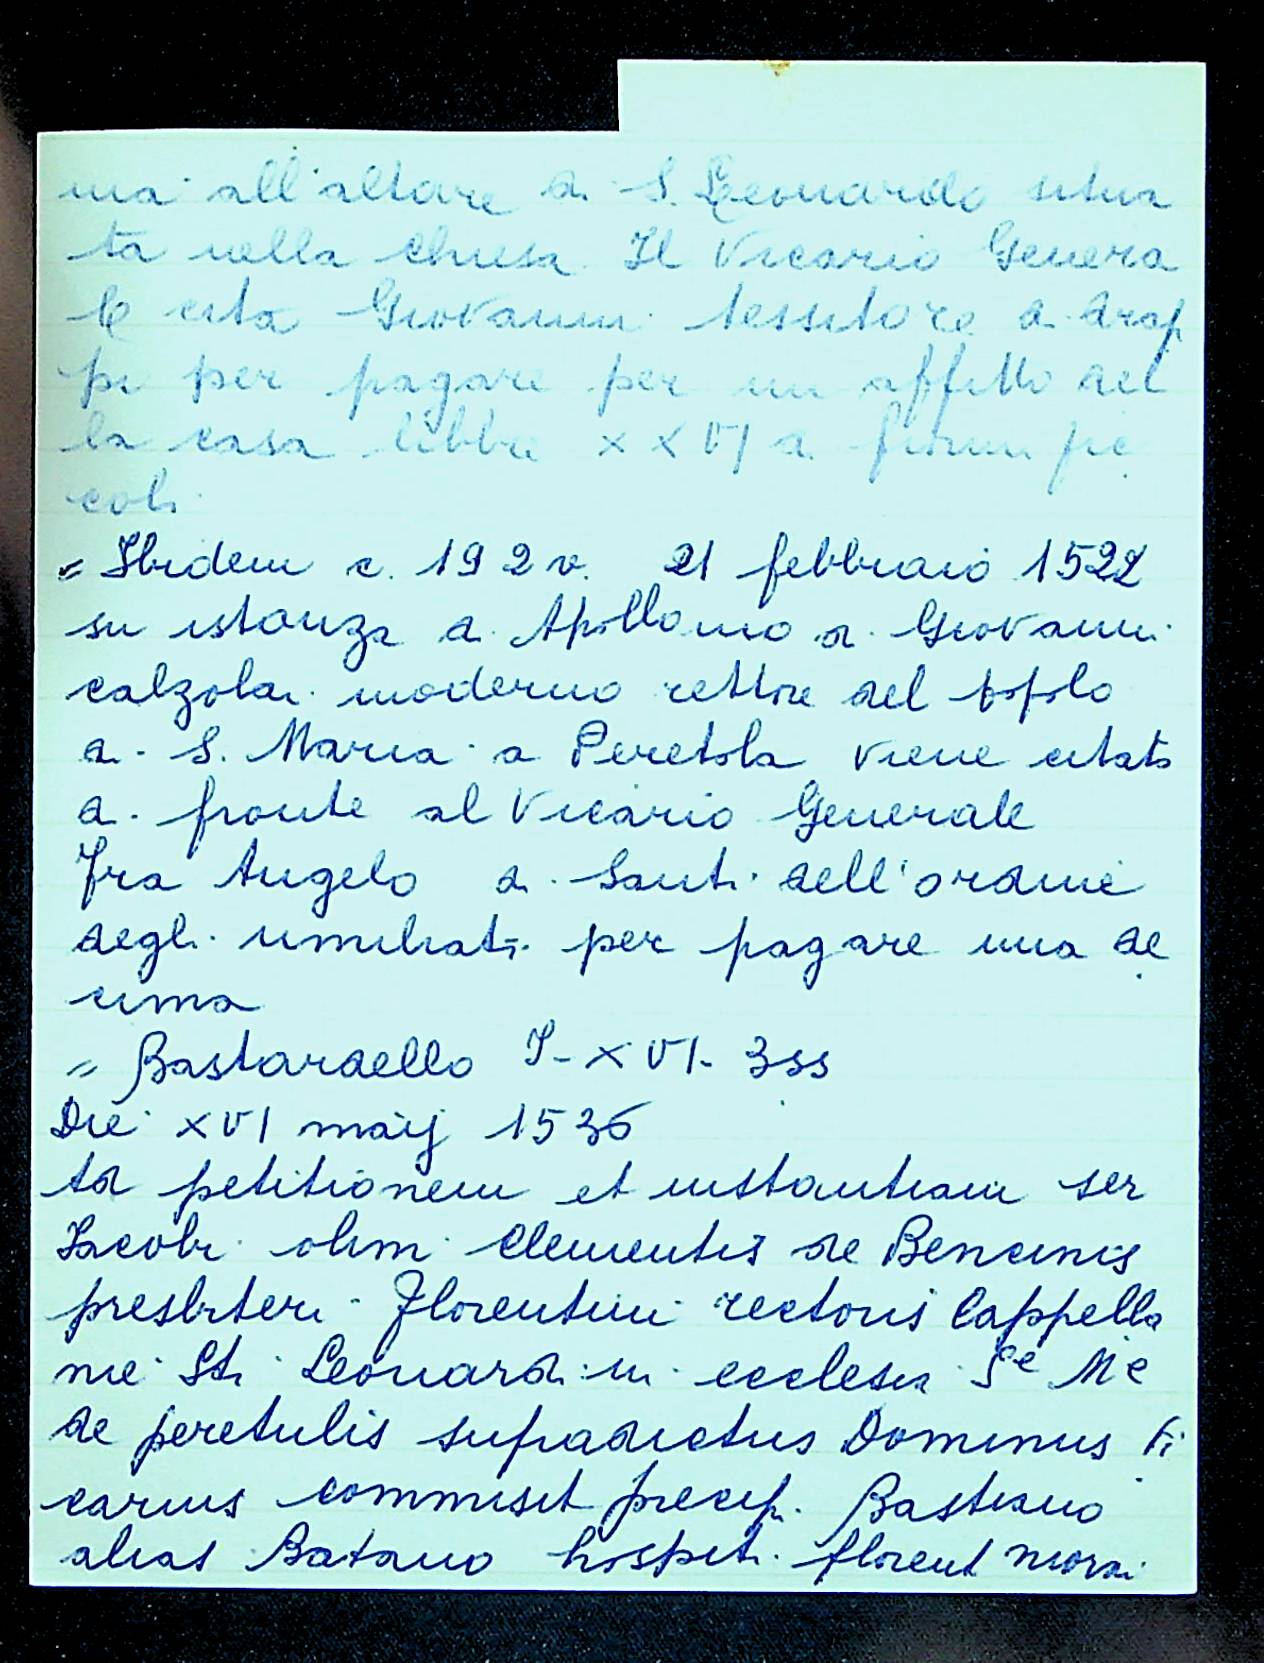 ma all'altare di S. Leonardo situa
ta nella chiesa. Il Vicario Genera
le cita Giovanni tessitore di drap
pi per pagare per un affitto del
la casa libbre XXVI di fiorini pic
coli.
= Ibidem c. 192 v. 21 febbraio 1522
su istanza di Apollonio di Giovanni
calzolai moderno rettore del popolo
di S. Maria a Peretola viene citato
di fronte al Vicario Generale
Fra Angelo di Santi dell'ordine
degli umiliati per pagare una de
cima
= Bastardello I-XVI- 3ss
Die XVI maij 1536
Ad petitionem et instantiam ser
Iacobi olim Clementis de Bencinis
presbiteri Florentini rectoris Cappella
nie Sti Leonardi in ecclesia Se Me
de peretulis supradictus Dominus Vi
carius commisit precip. Bastiano
alias Batano hospiti florent